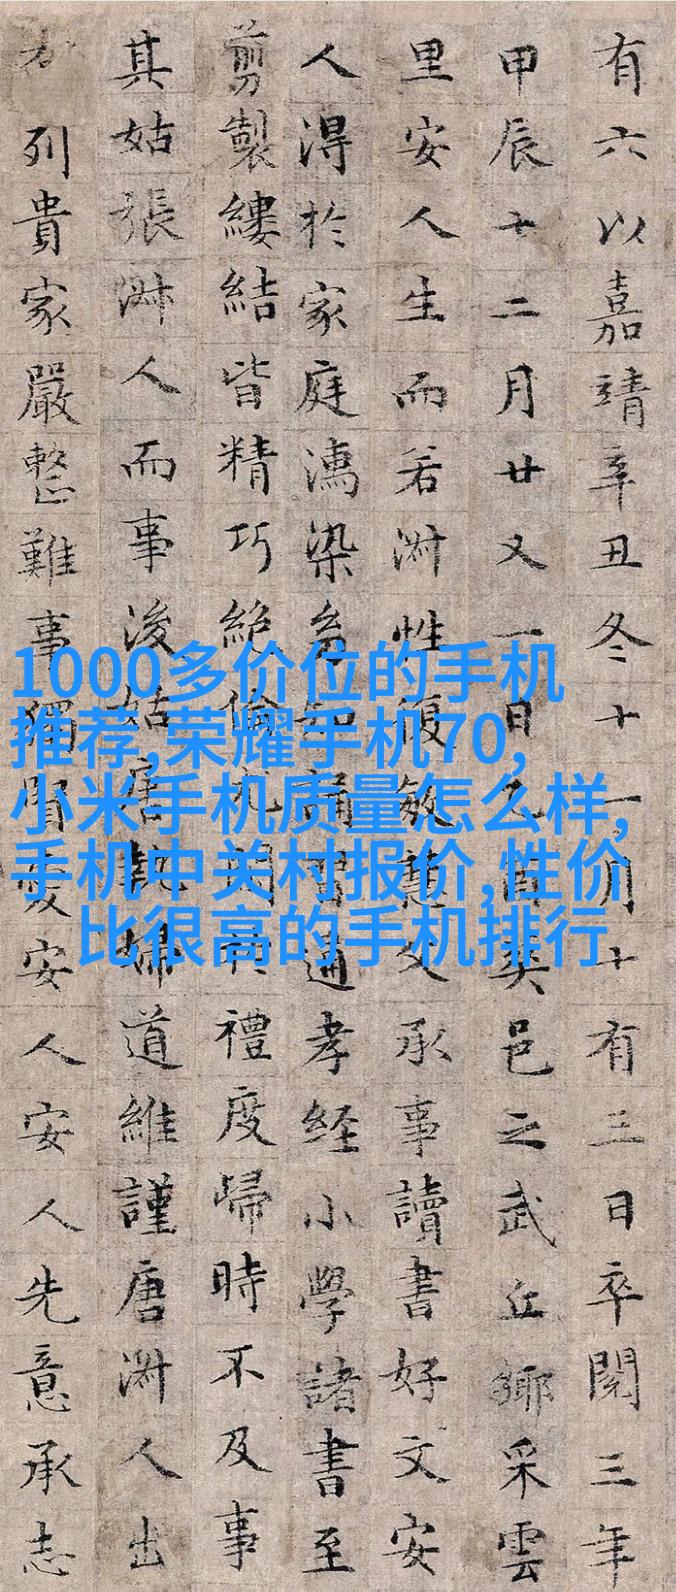 有六以嘉靖辛丑冬十一月十有三日卒閱三年
甲辰十二月廿又一日乙酉葬邑之武丘鄉采雲
里安人生而若淑性復敏慧父承事讀書好文安
人得於家庭濡染知誦習通孝經小學諸書至
剪製縷結皆精巧絕倫尤閑於禮度歸時不及事
其姑張淑人而事後姑唐執婦道維謹唐淑人出
列貴家嚴整難事獨賢愛安人安人先意承志
1000多价位的手机
推荐,荣耀手机70,
小米手机质量怎么样,
手机中关村报价,性价
比很高的手机排行